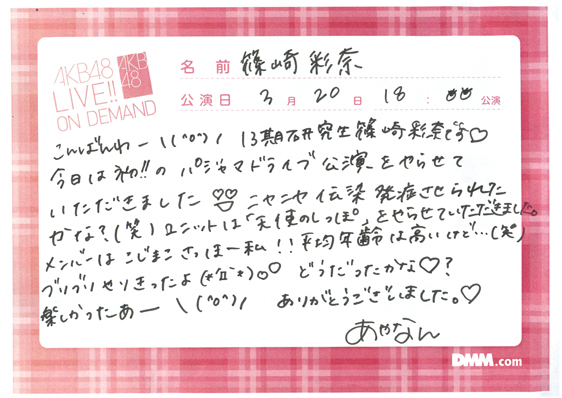 AKB48
LIVE!!
ON DEMAND
AKB
48
名 前 篠崎彩奈
公演日 3 月 20 日 18 : 00 公演
こんばんわー \(^o^)/ 13期研究生篠崎彩奈です♡
今日は初!!の パジャマドライブ公演をやらせて
いただきました ニヤニヤ伝染発症させられた
かな?(笑) ユニットは「天使のしっぽ」をやらせていただきました。
メンバーは こじまこ さっほー 私!! 平均年齢は高いけど…(笑)
ブリブリやりきったよ(*´Д`*) どうだったかな♡?
楽しかったあー \(^o^)/ ありがとうございました。♡
あやなん
DMM.com